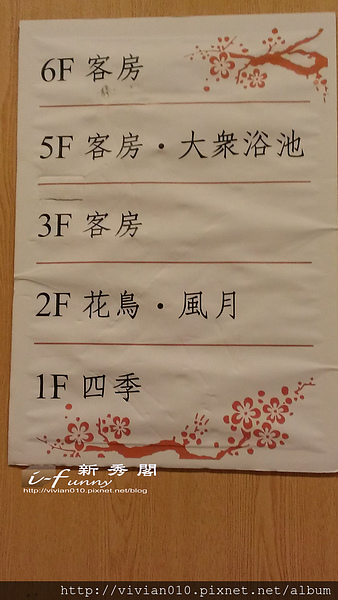 6F 客房
5F 客房・大衆浴池
3F 客房
2F 花鳥・風月
1F 四季
i-Funny 新秀閣
http://vivian010.pixnet.net/blog
http://vivian010.pixnet.net/album